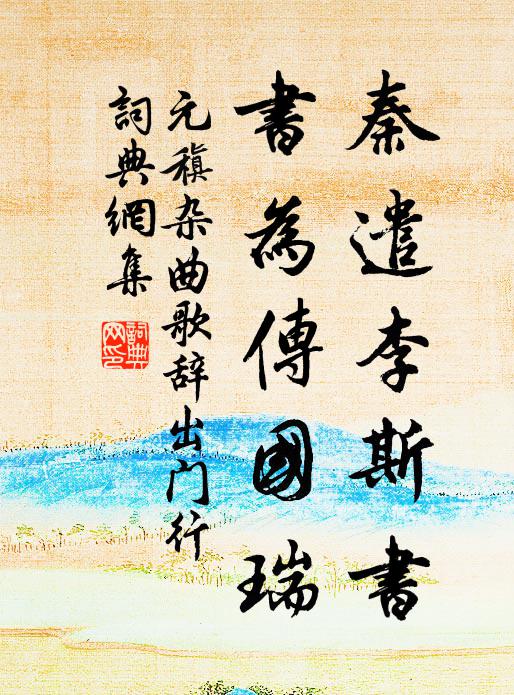 秦遣李斯書
書為傳國瑞
元稹杂曲歌辞出门行
詞典網集
詞典网印